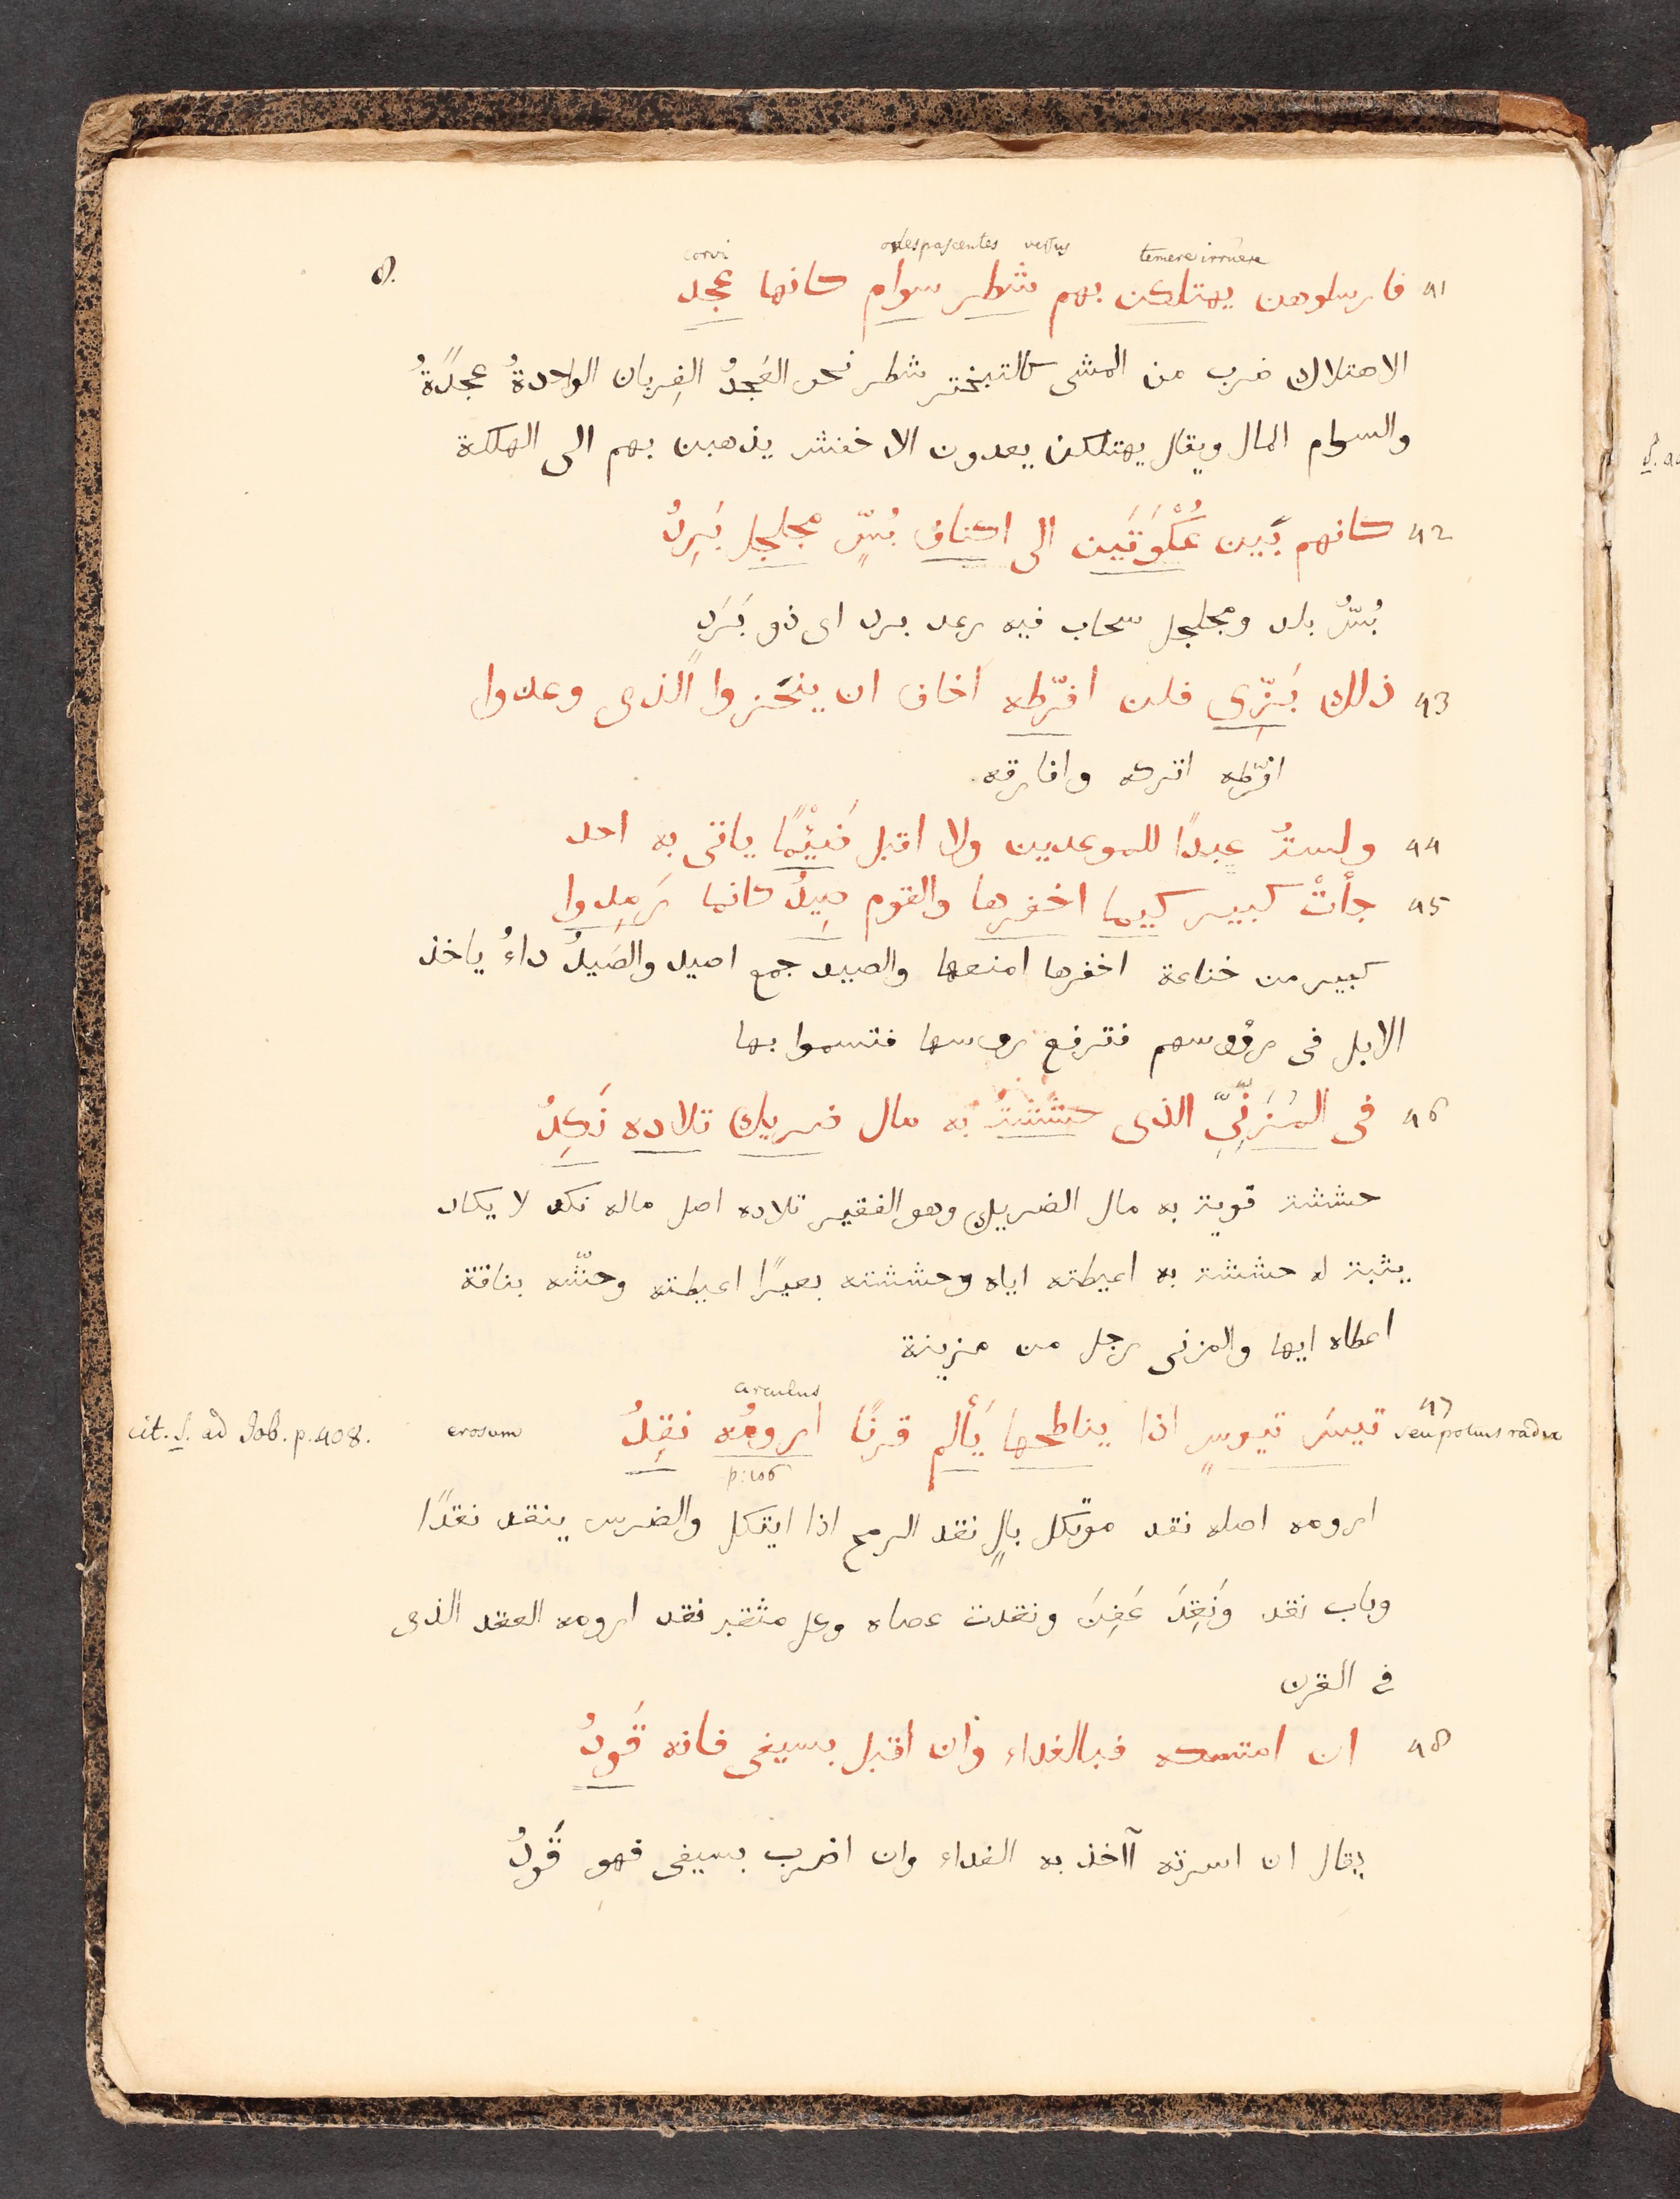 8.
corvi oves pascentes versus temere irruere
91 فارسلوهن يهتلكن بهم شطر سوام كانها عجد
الاهتلاك ضرب من المشى كالتبختر شطر نحو العُجدُ الغِربان الواحدةُ عجدَةٌ
والسوام المال ويقال يهتلكن يعدون الاخفش يذهبن بهم الى الهلكة
92 كانهم بَين عُكْوَتَين الى اكناف بُسٍّ مجلجل بَرِدُ
بُسٌّ بلد ومجلجل سحاب فيه رعد برد اى ذو بَرَدٍ
93 ذلك بَزِّى فلن افرّطه اخاف ان ينحَزوا الذى وعدوا
افرّطه اتركه وافارقه
94 ولستُ عبدًا للموعدين ولا اقبل ضَيْمًا ياتى به احد
95 جأتْ كبير كيما اخفرها والقوم صِيدُ كانما رَمِدوا
كبير من خناعة اخفرها امنعها والصيد جمع اصيد والصَيدُ داءُ ياخذ
الابل فى رؤوسهم فترفع روسها فتسموا بها
96 فى المُزَنِّىِّ الذى حششتُ به مال ضريك تلاده نَكِدُ
حششت قويت به مال الضريك وهو الفقير تلاده اصل ماله نكد لا يكاد
يثبت له حششت به اعيطته اياه وحششته بعيرًا اعيطته وحشّه بناقة
اعطاه ايها والمزنى رجل من مزينة
arculus
97 تيسَ تيوسٍ اذا يناطحها يَألم قرنًا ارومُه نقِدُ
seu potius radix
erosum
cit. S. ad Job. p. 408.
p: 106
ارومه اصله نقد موتكل بالٍ نقد الرمح اذا ايتكل والضرس ينقد نقدًا
وباب نقد وَنَقِدَ عَفِنَ ونقدت عصاه وعل مثقبر نقد ارومه العقد الذى
فى القرن
98 ان امتسكه فبالفداء وان اقبل بسيفى فانه قَودُ
يقال ان اسرته آاخذ به الفداء وان اضرب بسيفى فهو قَودُ